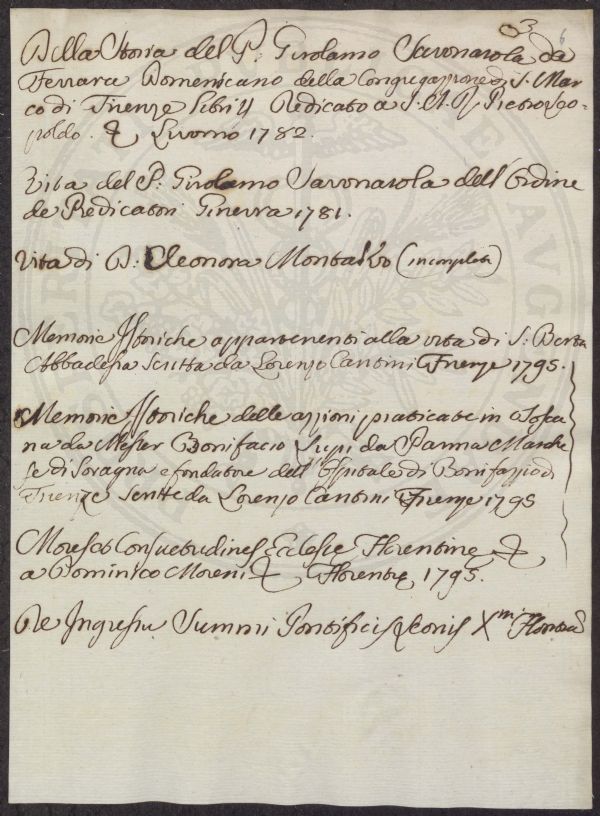 3 6
Della Storia del P: Girolamo Savonarola da
Ferrara Domenicano della Congregazione di S. Mar-
co di Firenze Libri 4 Dedicato a S. A. R. Pietro Leo-
poldo. & Livorno 1782.
Vita del P: Girolamo Savonarola dell' Ordine
de Predicatori Ginevra 1781.
Vita di D: Eleonora Montalvo (incompleta)
Memorie Istoriche appartenenti alla vita di S: Berta
Abbadessa Scritta da Lorenzo Cantini Firenze 1795.
Memorie Istoriche delle azzioni praticate in Tosca
na da Messer Bonifacio Lupi da Parma Marche
se di Soragna e fondatore dell' Ospitale di Bonifazio di
Firenze Scritte da Lorenzo Cantini Firenze 1795
Mores et Consuetudines Ecclesie Florentine &
a Dominico Moreni & Florentie 1795.
De Ingressu Summi Pontificis Leonis Xmi